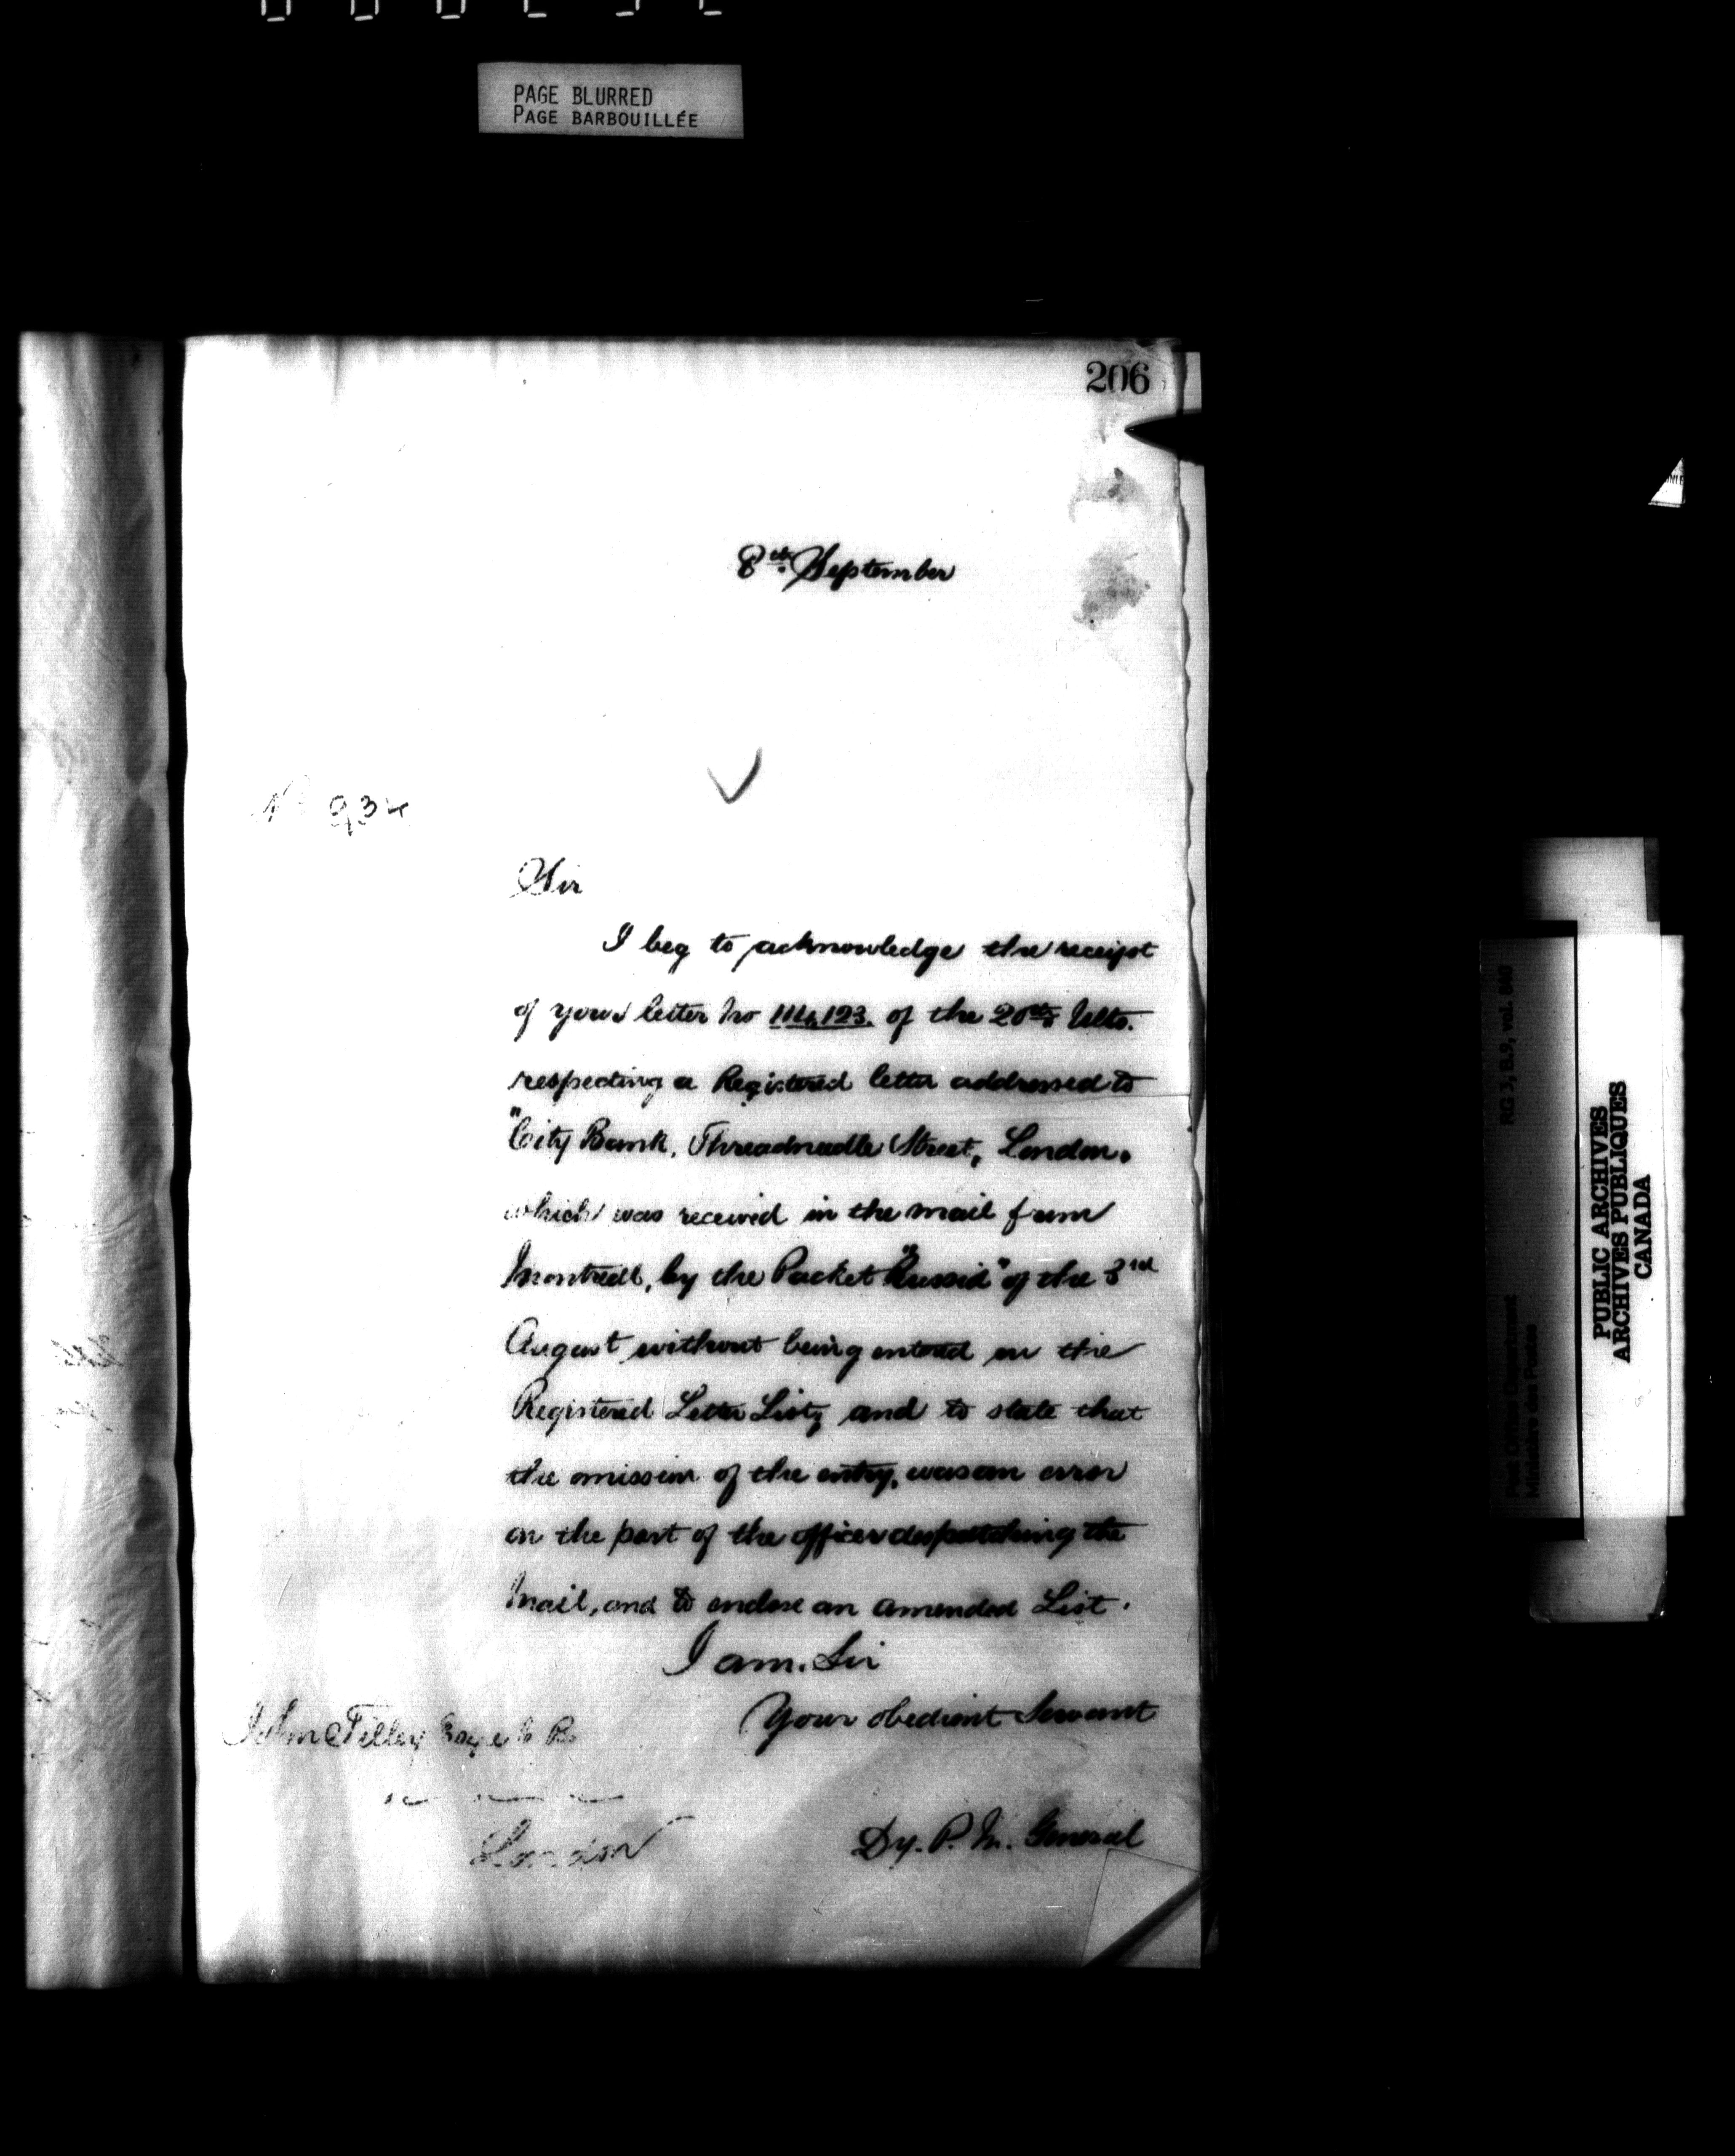 PAGE BLURRED
PAGE BARBOUILLÉE
206
8th September
No 934
Sir
I beg to acknowledge the receipt
of your letter No 114,123. of the 20th Ulto.
respecting a Registered letter addressed to
"City Bank, Threadneedle Street, London.
which was received in the mail from
Montreal, by the Packet "Russia" of the 3rd
August without being entered on the
Registered Letter List, and to state that
the omission of the entry, was an error
on the part of the officer despatching the
Mail, and to enclose an amended List.
I am. Sir
Your obedient Servant
John Tilley Esqr C. B.
London
Dy. P. M. General
RG 3, B.9, vol. 840
Post Office Department
Ministère des Postes
PUBLIC ARCHIVES
ARCHIVES PUBLIQUES
CANADA